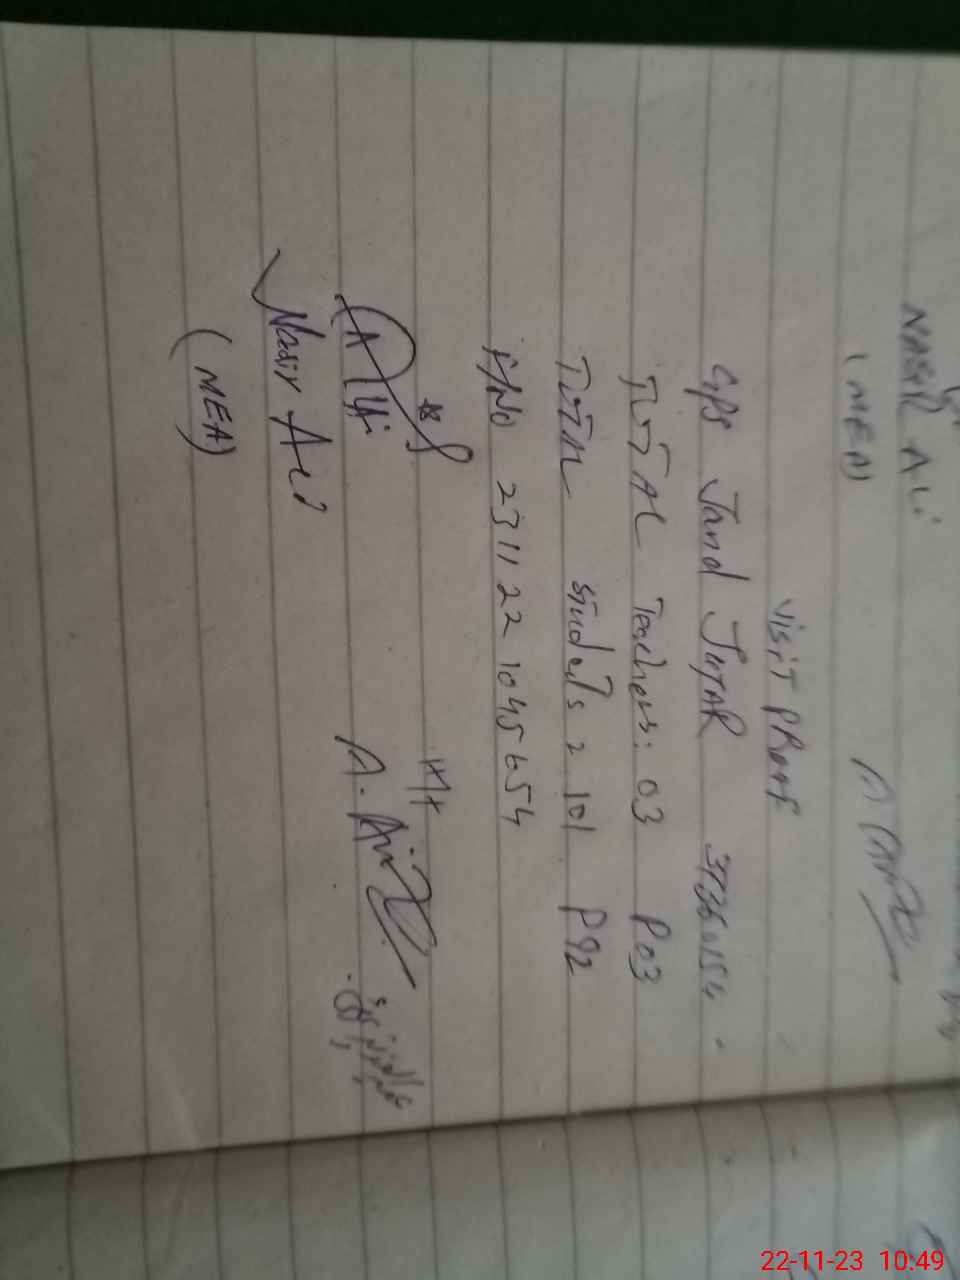 NASIR Ali
(MEA)
VISIT PROOF
GPS Jand JATAR
TOTAL Teachers: 03 P03
TOTAL Students = 101 P92
I/No 231122 1045654
H/t
Ali
A. Aziz
Nasir Ali
(MEA)
22-11-23 10:49